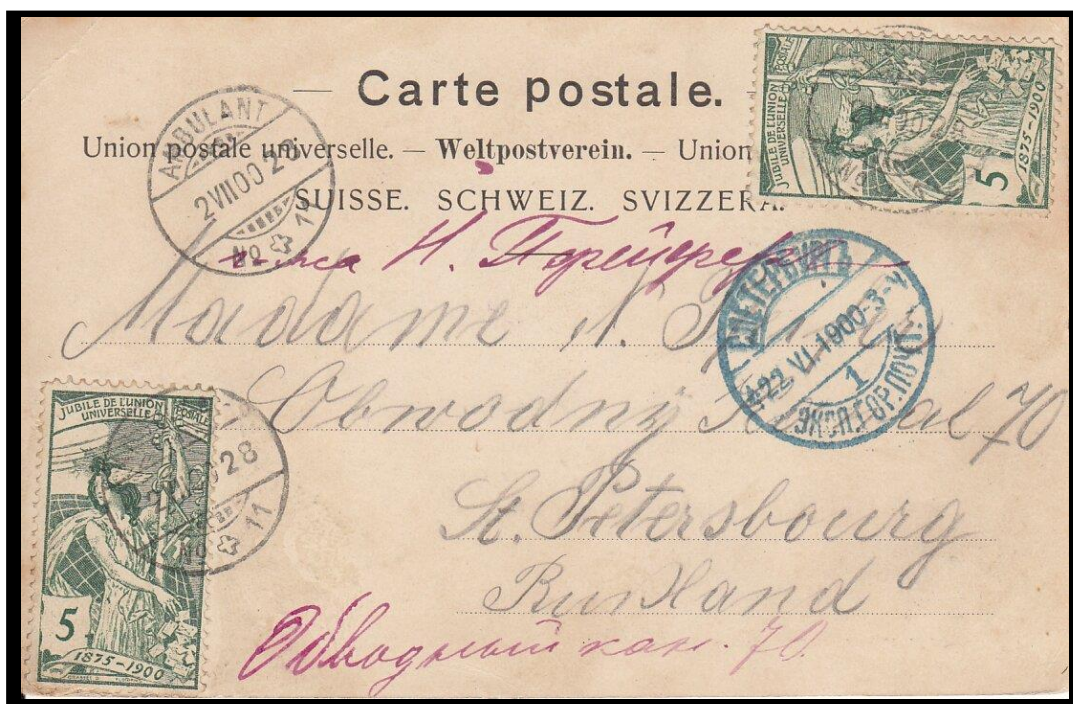 Carte postale.
Union postale universelle. — Weltpostverein. — Union
SUISSE. SCHWEIZ. SVIZZERA.
AMBULANT
2 VII 00 28
No 11
JUBILÉ DE L'UNION POSTALE
UNIVERSELLE
1875-1900
5
г-жа Н.
Madame N.
Obwodny 70
St. Petersbourg
Russland
Обводный кан. 70.
С.ПЕТЕРБУРГЪ
22 VI 1900
1
ЭКСП.ГОР.ПОЧТ
JUBILÉ DE L'UNION
UNIVERSELLE POSTALE
5
1875-1900
28
No 11